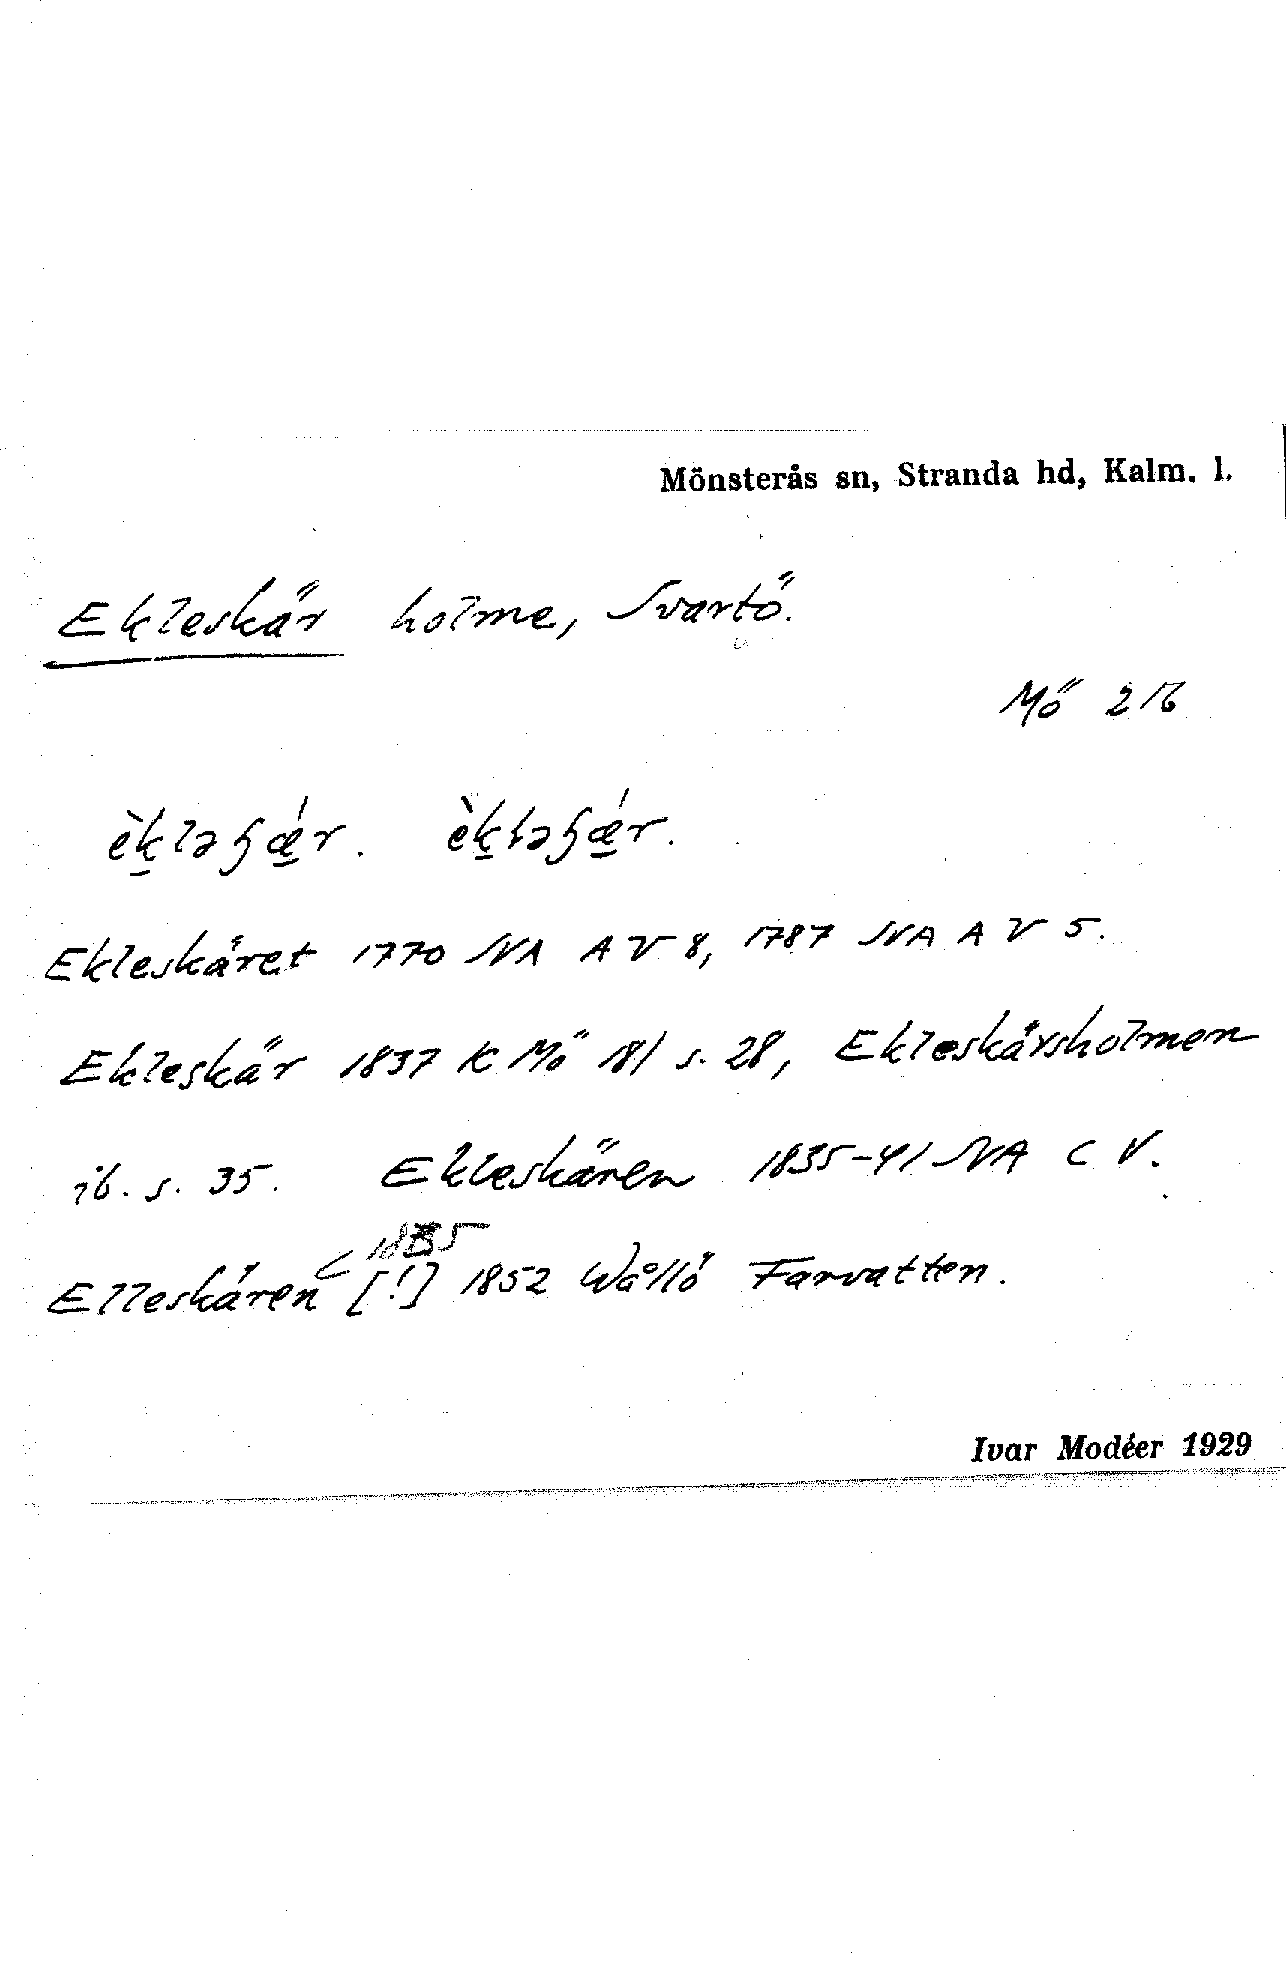 Mönsterås sn, Stranda hd, Kalm. l.
Ekleskär holme, Svartö.
Mö 216
èkləʃǽr. èkłəʃǽr.
Ekleskäret 1770 SVA A V 8, 1787 SVA A V 5.
Ekleskär 1837 K Mö 181 s. 28, Ekleskärsholmen
ib. s. 35. Ekleskären 1835-41 SVA C V.
1835
Elleskären [!] 1852 Wållö Farvatten.
Ivar Modéer 1929